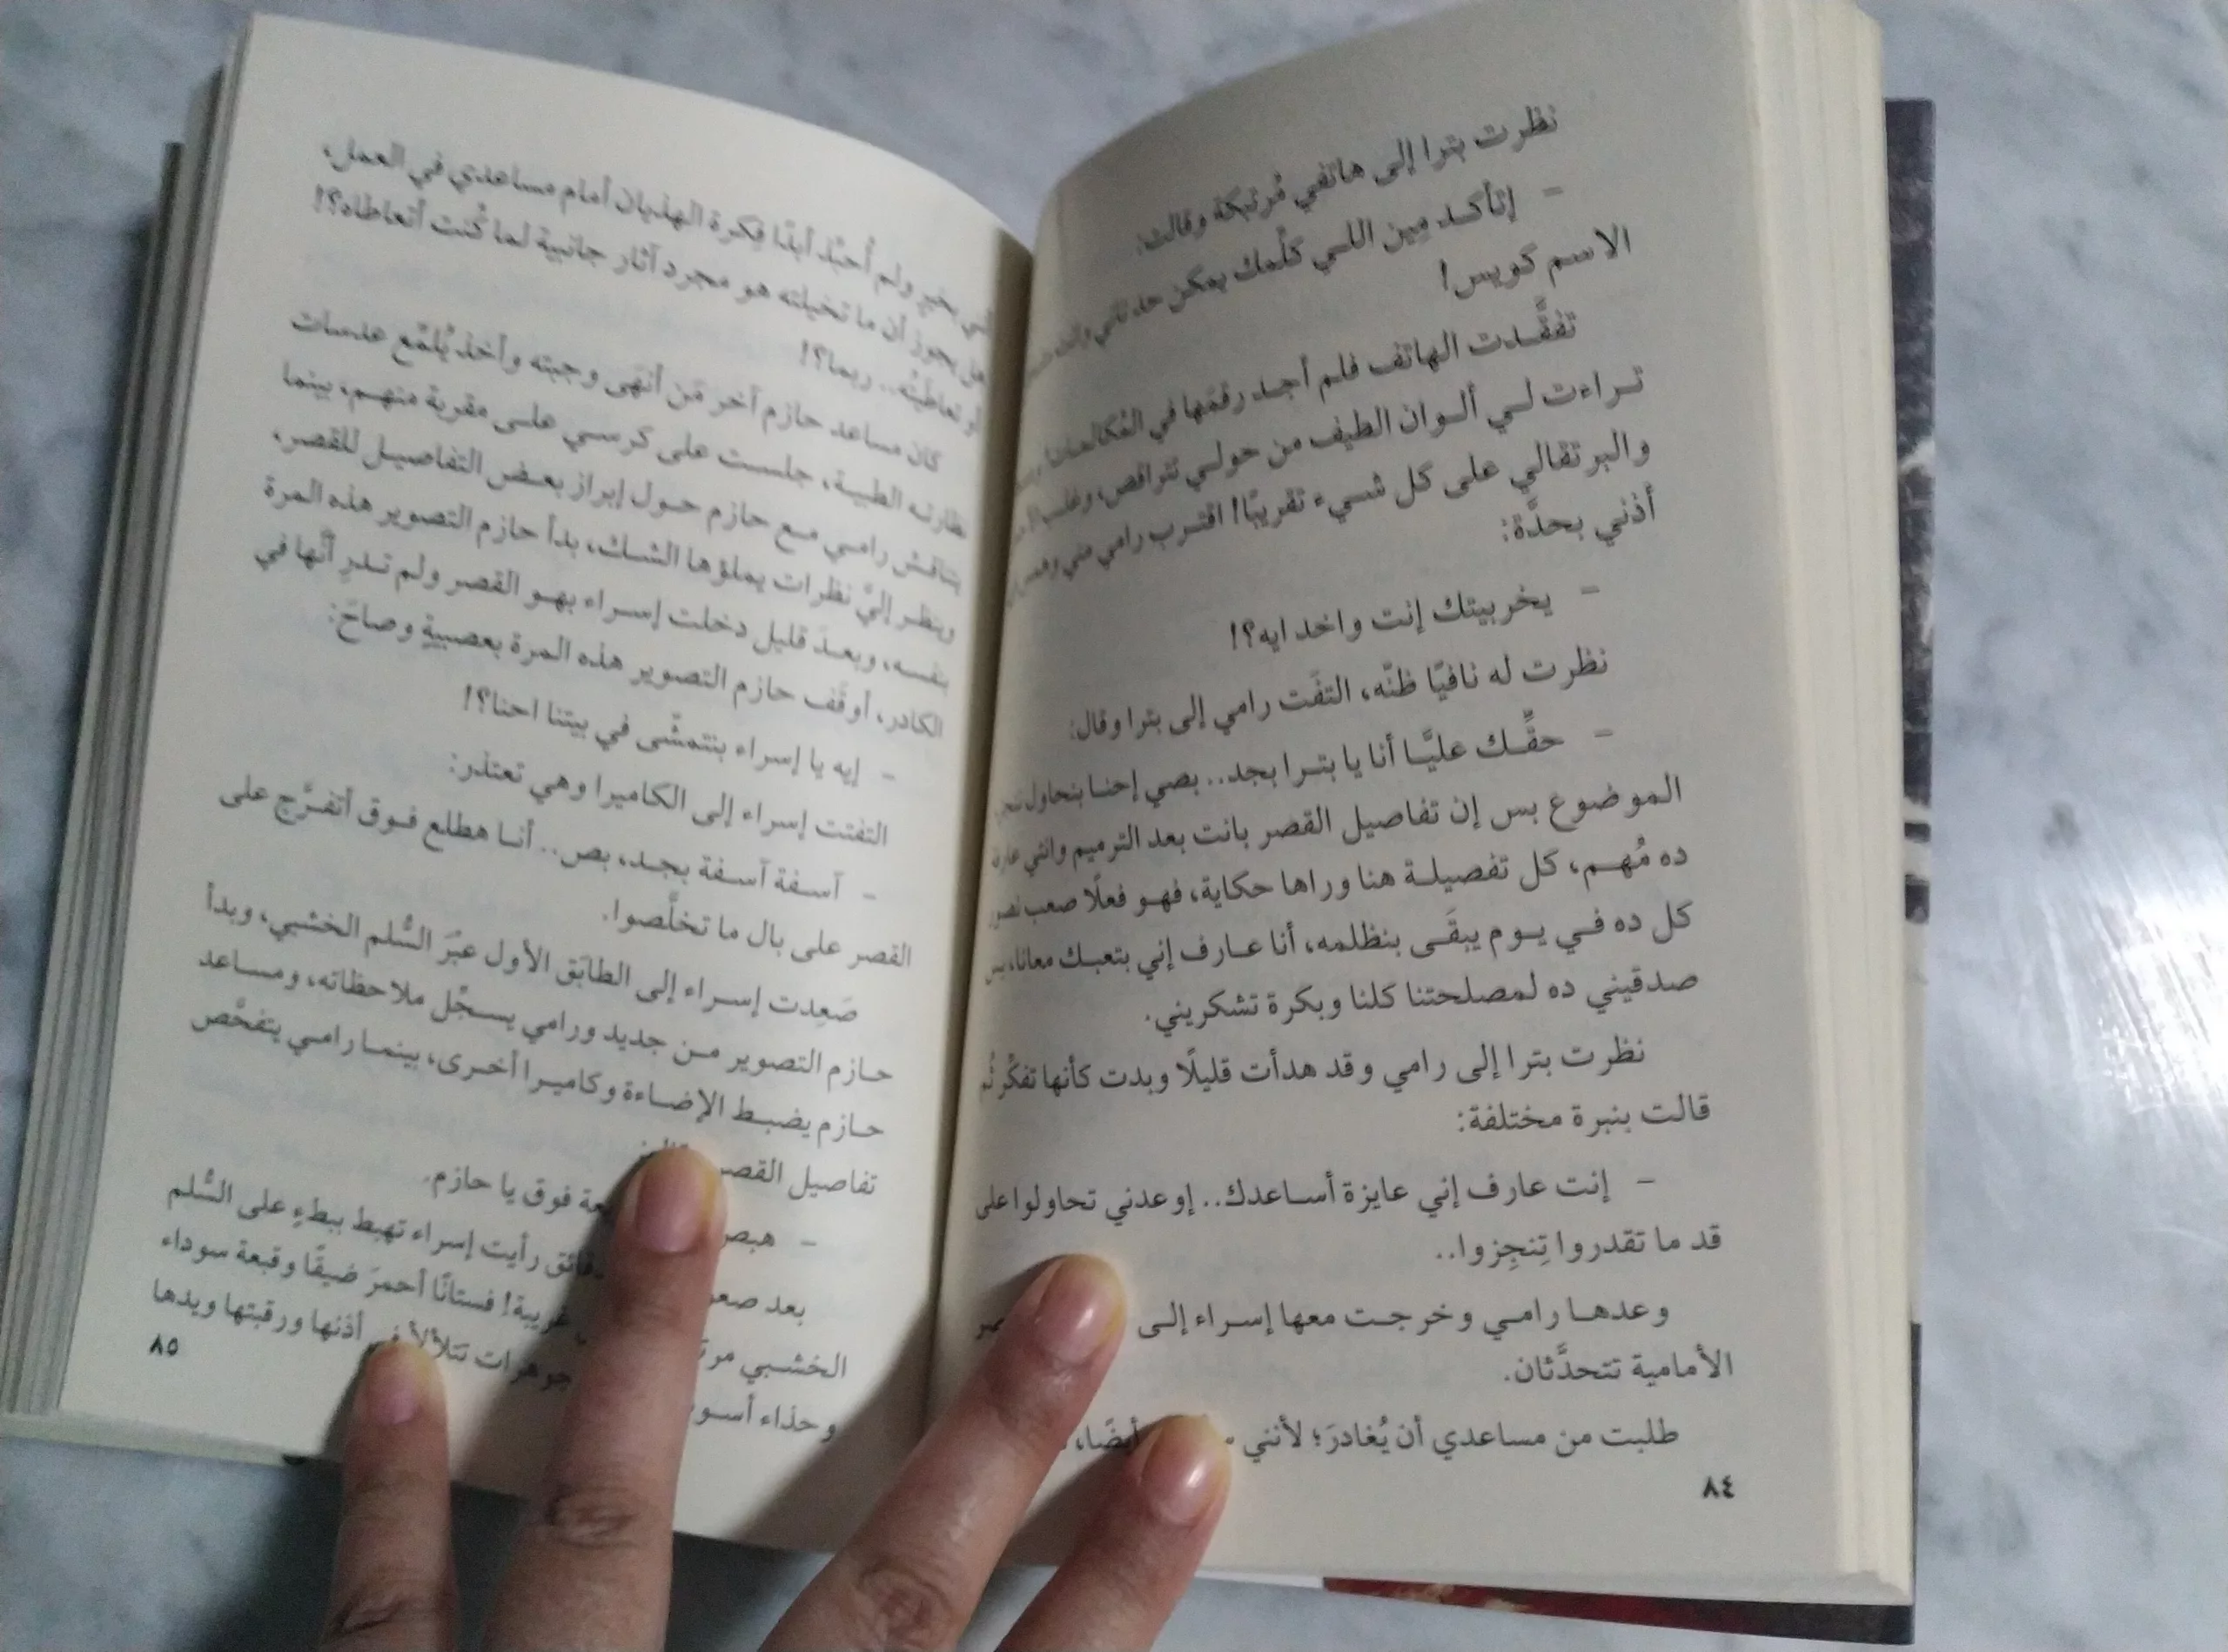 نظرت بترا إلى هاتفي مُرتبكة وقالت:
– إتأكد مِين اللي كلِّمك يمكن حد تاني وانت
الاسم كويس!
تفقَّدت الهاتف فلم أجد رقمَها في المُكالمات!
تراءت لي ألوان الطيف من حولي تتراقص، وغلب
والبرتقالي على كل شيء تقريبًا! اقترب رامي مني وهمس
أذني بحدَّة:
– يخربيتك إنت واخد ايه؟!
نظرت له نافيًا ظنّه، التفَت رامي إلى بترا وقال:
– حقِّك عليَّا أنا يا بترا بجد.. بصي إحنا بنحاول
الموضوع بس إن تفاصيل القصر بانت بعد الترميم وانتي
ده مُهم، كل تفصيلة هنا وراها حكاية، فهو فعلًا صعب نصور
كل ده في يوم يبقَى بنظلمه، أنا عارف إني بتعبك معانا، بس
صدقيني ده لمصلحتنا كلنا وبكرة تشكريني.
نظرت بترا إلى رامي وقد هدأت قليلًا وبدت كأنها تفكِّر ثُم
قالت بنبرة مختلفة:
– إنت عارف إني عايزة أساعدك.. إوعدني تحاولوا على
قد ما تقدروا تِنجِزوا..
وعدها رامي وخرجت معها إسراء إلى
الأمامية تتحدَّثان.
طلبت من مساعدي أن يُغادرَ؛ لأنني أيضًا،
٨٤
بخيرٍ ولم أُحبِّذ أبدًا فِكرة الهذيان أمام مساعدي في العمل،
هل يجوز أن ما تخيلته هو مجرد آثار جانبية لما كُنت أتعاطاه؟!
أو تعاطيتُه.. ربما؟!
كان مساعد حازم آخر مَن أنهَى وجبته وأخذ يُلمِّع عدسات
نظارته الطبية، جلست على كرسي على مقربة منهم، بينما
يتناقش رامي مع حازم حول إبراز بعض التفاصيل للقصر،
وينظر إليَّ نظرات يملؤها الشك، بدأ حازم التصوير هذه المرة
بنفسه، وبعدَ قليل دخلت إسراء بهو القصر ولم تدرِ أنَّها في
الكادر، أوقَف حازم التصوير هذه المرة بعصبيةٍ وصاحَ:
– إيه يا إسراء بنتمشَّى في بيتنا احنا؟!
التفتت إسراء إلى الكاميرا وهي تعتذر:
– آسفة آسفة بجد، بص.. أنا هطلع فوق أتفرَّج على
القصر على بال ما تخلَّصوا.
صَعِدت إسراء إلى الطابَق الأول عبْرَ السُّلم الخشبي، وبدأ
حازم التصوير من جديد ورامي يسجِّل ملاحظاته، ومساعد
حازم يضبط الإضاءة وكاميرا أخرى، بينما رامي يتفحَّص
تفاصيل القصر
– هبص فوق يا حازم.
بعد دقائق رأيت إسراء تهبط ببطءٍ على السُّلم
الخشبي غريبة! فستانًا أحمرَ ضيقًا وقبعة سوداء
وحذاء جوهرات تتلألأ في أذنها ورقبتها ويدها
٨٥